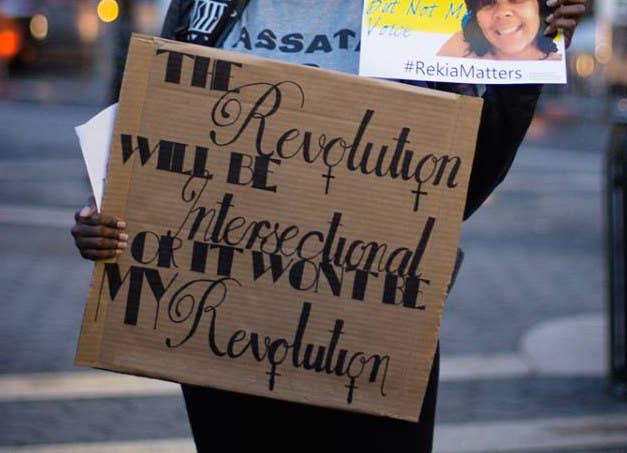 ASSATA
But Not My
Voice
#RekiaMatters
THE
Revolution
WILL BE
Intersectional
OR IT WONT BE
MY Revolution